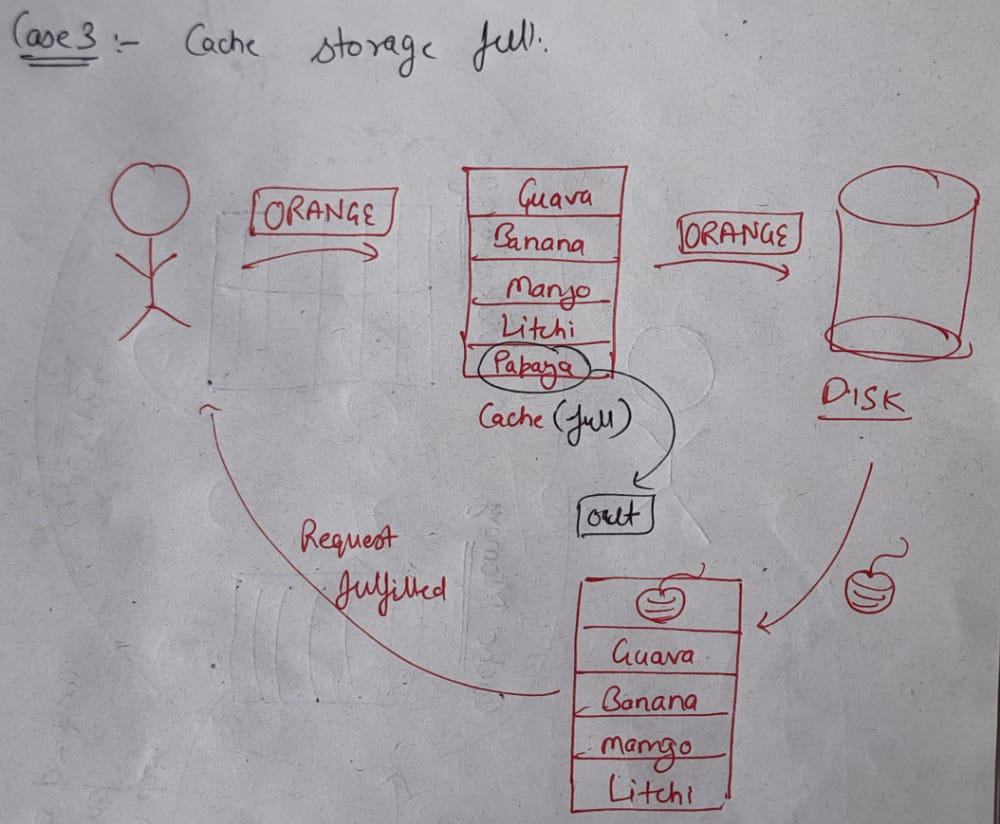 Case 3 :- Cache storage full.
ORANGE
Guava
Banana
Mango
Litchi
Papaya
Cache (full)
ORANGE
DISK
out
Request
fulfilled
Guava
Banana
mamgo
Litchi